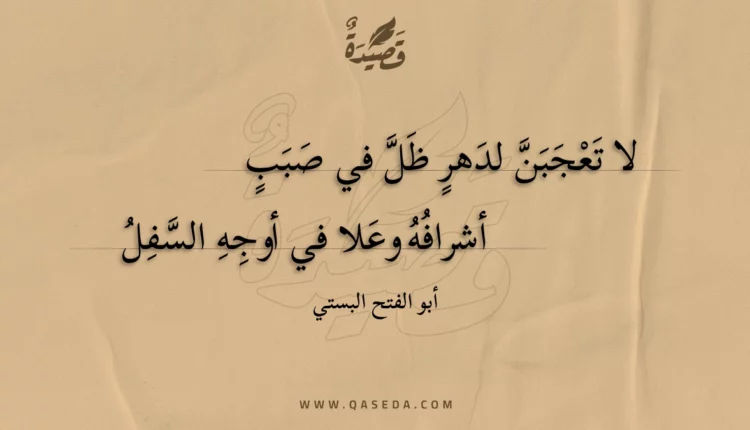 قَصِيْدَةٌ
لا تَعْجَبَنَّ لدَهرٍ ظَلَّ في صَبَبٍ
أشرافُهُ وعَلا في أوجِهِ السَّفِلُ
أبو الفتح البستي
WWW.QASEDA.COM